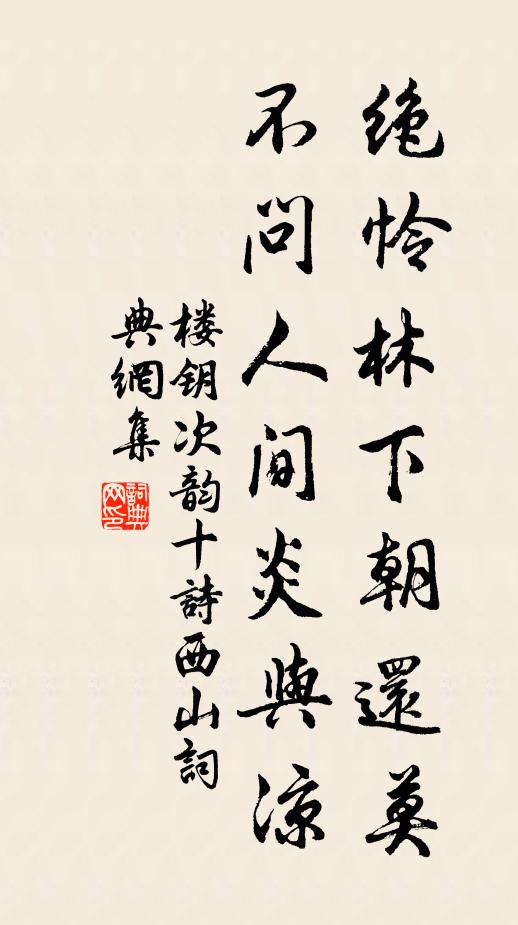 绝怜林下朝還莫
不問人间炎與凉
楼钥次韵十詩西山詞
典網集
詞典
网印